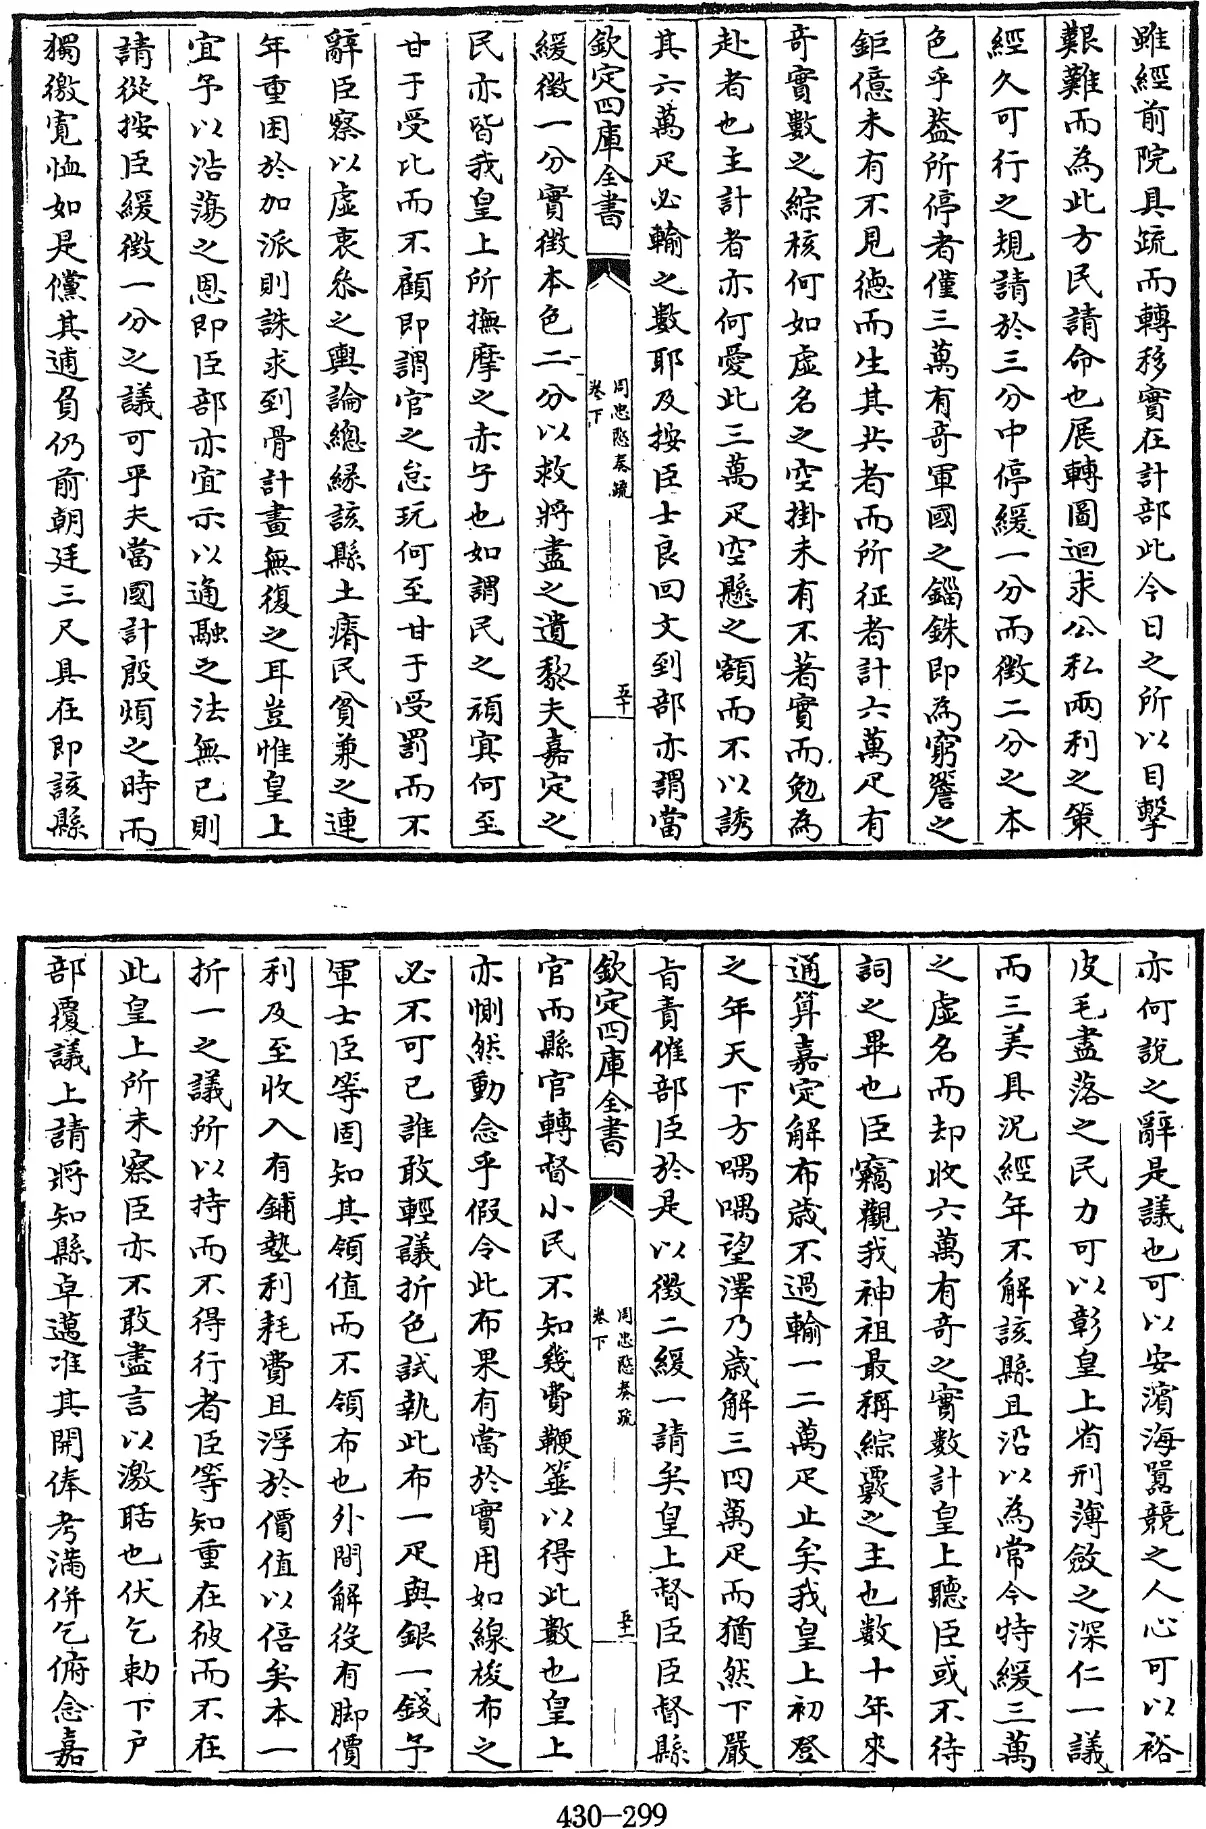 雖經前院具疏而轉移實在計部此今日之所以目擊
艱難而為此方民請命也展轉圖迴求公私兩利之策
經久可行之規請於三分中停緩一分而徵二分之本
色乎蓋所停者僅三萬有奇軍國之錙銖即為窮簷之
鉅億未有不見德而生其共者而所征者計六萬疋有
奇實數之綜核何如虛名之空掛未有不著實而勉為
赴者也主計者亦何愛此三萬疋空懸之額而不以誘
其六萬疋必輸之數耶及按臣士良回文到部亦謂當
欽定四庫全書
周忠愍奏疏
卷下
五十
緩徵一分實徵本色二分以救將盡之遺黎夫嘉定之
民亦皆我皇上所撫摩之赤子也如謂民之頑冥何至
甘于受比而不顧即謂官之怠玩何至甘于受罰而不
辭臣察以虛衷叅之輿論總緣該縣土瘠民貧兼之連
年重困於加派則誅求到骨計畫無復之耳豈惟皇上
宜予以浩蕩之恩即臣部亦宜示以通融之法無已則
請從按臣緩徵一分之議可乎夫當國計殷煩之時而
獨徼寛恤如是儻其逋負仍前朝廷三尺具在即該縣
亦何說之辭是議也可以安濱海囂競之人心可以裕
皮毛盡落之民力可以彰皇上省刑薄斂之深仁一議
而三美具況經年不解該縣且沿以為常今特緩三萬
之虛名而却收六萬有奇之實數計皇上聽臣或不待
詞之畢也臣竊觀我神祖最稱綜覈之主也數十年來
通算嘉定解布歲不過輸一二萬疋止矣我皇上初登
之年天下方喁喁望澤乃歲解三四萬疋而猶然下嚴
旨責催部臣於是以徵二緩一請矣皇上督臣臣督縣
欽定四庫全書
周忠愍奏疏
卷下
五十一
官而縣官轉督小民不知幾費鞭箠以得此數也皇上
亦惻然動念乎假令此布果有當於實用如線梭布之
必不可已誰敢輕議折色試執此布一疋與銀一錢予
軍士臣等固知其領值而不領布也外間解役有脚價
利及至收入有鋪墊利耗費且浮於價值以倍矣本一
折一之議所以持而不得行者臣等知重在彼而不在
此皇上所未察臣亦不敢盡言以激聒也伏乞勅下户
部覆議上請將知縣卓邁准其開俸考滿併乞俯念嘉
430-299